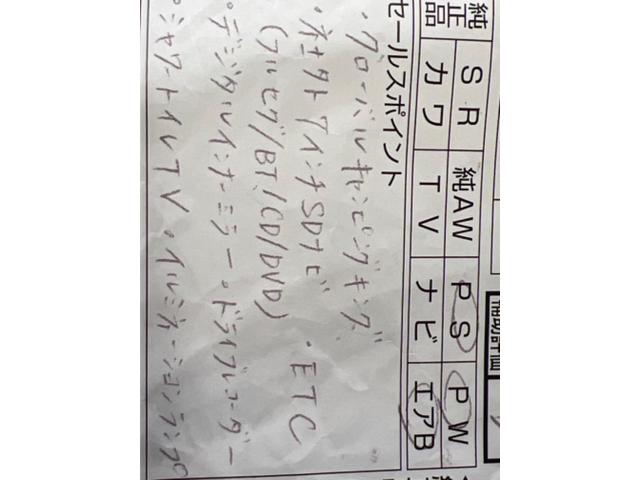 純正品
SR
純AW
PS
PW
カワ
TV
ナビ
エアB
セールスポイント
・グローバルキャンピングキング
・ネオクト7インチSDナビ ・ETC
(フルセグ/BT/CD/DVD)
・デジタルインナーミラー・ドライブレコーダー
・シャワートイレTV・イルミネーションランプ
補助評価